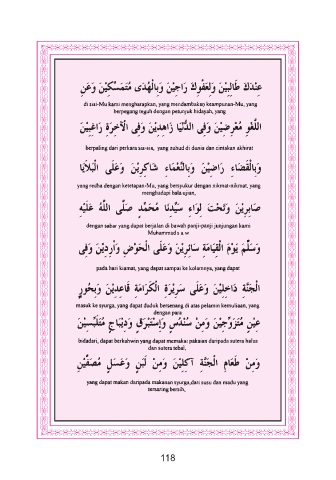 عِنْدَكَ طَالِبِيْنَ وَلِعَفْوِكَ رَاجِيْنَ وَبِالْهُدَى مُتَمَسِّكِيْنَ وَعَنِ
di sisi-Mu kami mengharapkan, yang mendambakan keampunan-Mu, yang
berpegang teguh dengan petunjuk hidayah, yang
اللَّغْوِ مُعْرِضِيْنَ وَفِى الدُّنْيَا زَاهِدِيْنَ وَفِى الْآخِرَةِ رَاغِبِيْنَ
berpaling dari perkara sia-sia, yang zuhud di dunia dan cintakan akhirat
وَبِالْقَضَاءِ رَاضِيْنَ وَبِالنَّعْمَاءِ شَاكِرِيْنَ وَعَلَى الْبَلَايَا
yang redha dengan ketetapan-Mu, yang bersyukur dengan nikmat-nikmat, yang
menghidupi bala ujian,
صَابِرِيْنَ وَتَحْتَ لِوَاءِ سَيِّدِنَا مُحَمَّدٍ صَلَّى اللَّهُ عَلَيْهِ
dengan sabar yang dapat berjalan di bawah panji-panji junjungan kami
Muhammad s.a.w
وَسَلَّمَ يَوْمَ الْقِيَامَةِ سَائِرِيْنَ وَعَلَى الْحَوْضِ وَارِدِيْنَ وَفِى
pada hari kiamat, yang dapat sampai ke kolamnya, yang dapat
الْجَنَّةِ دَاخِلِيْنَ وَعَلَى سَرِيْرَةِ الْكَرَامَةِ قَاعِدِيْنَ وَبِحُوْرٍ
masuk ke syurga, yang dapat duduk bersenang di atas pelamin kemuliaan, yang
dengan para
عِيْنٍ مُتَزَوِّجِيْنَ وَمِنْ سُنْدُسٍ وَإِسْتَبْرَقٍ وَدِيْبَاجٍ مُتَلَبِّسِيْنَ
bidadari, dapat berkahwin yang dapat memakai pakaian daripada sutera halus
dan sutera tebal,
وَمِنْ طَعَامِ الْجَنَّةِ آكِلِيْنَ وَمِنْ لَبَنٍ وَعَسَلٍ مُصَفَّيْنِ
yang dapat makan daripada makanan syurga,dari susu dan madu yang
tersaring bersih,
118